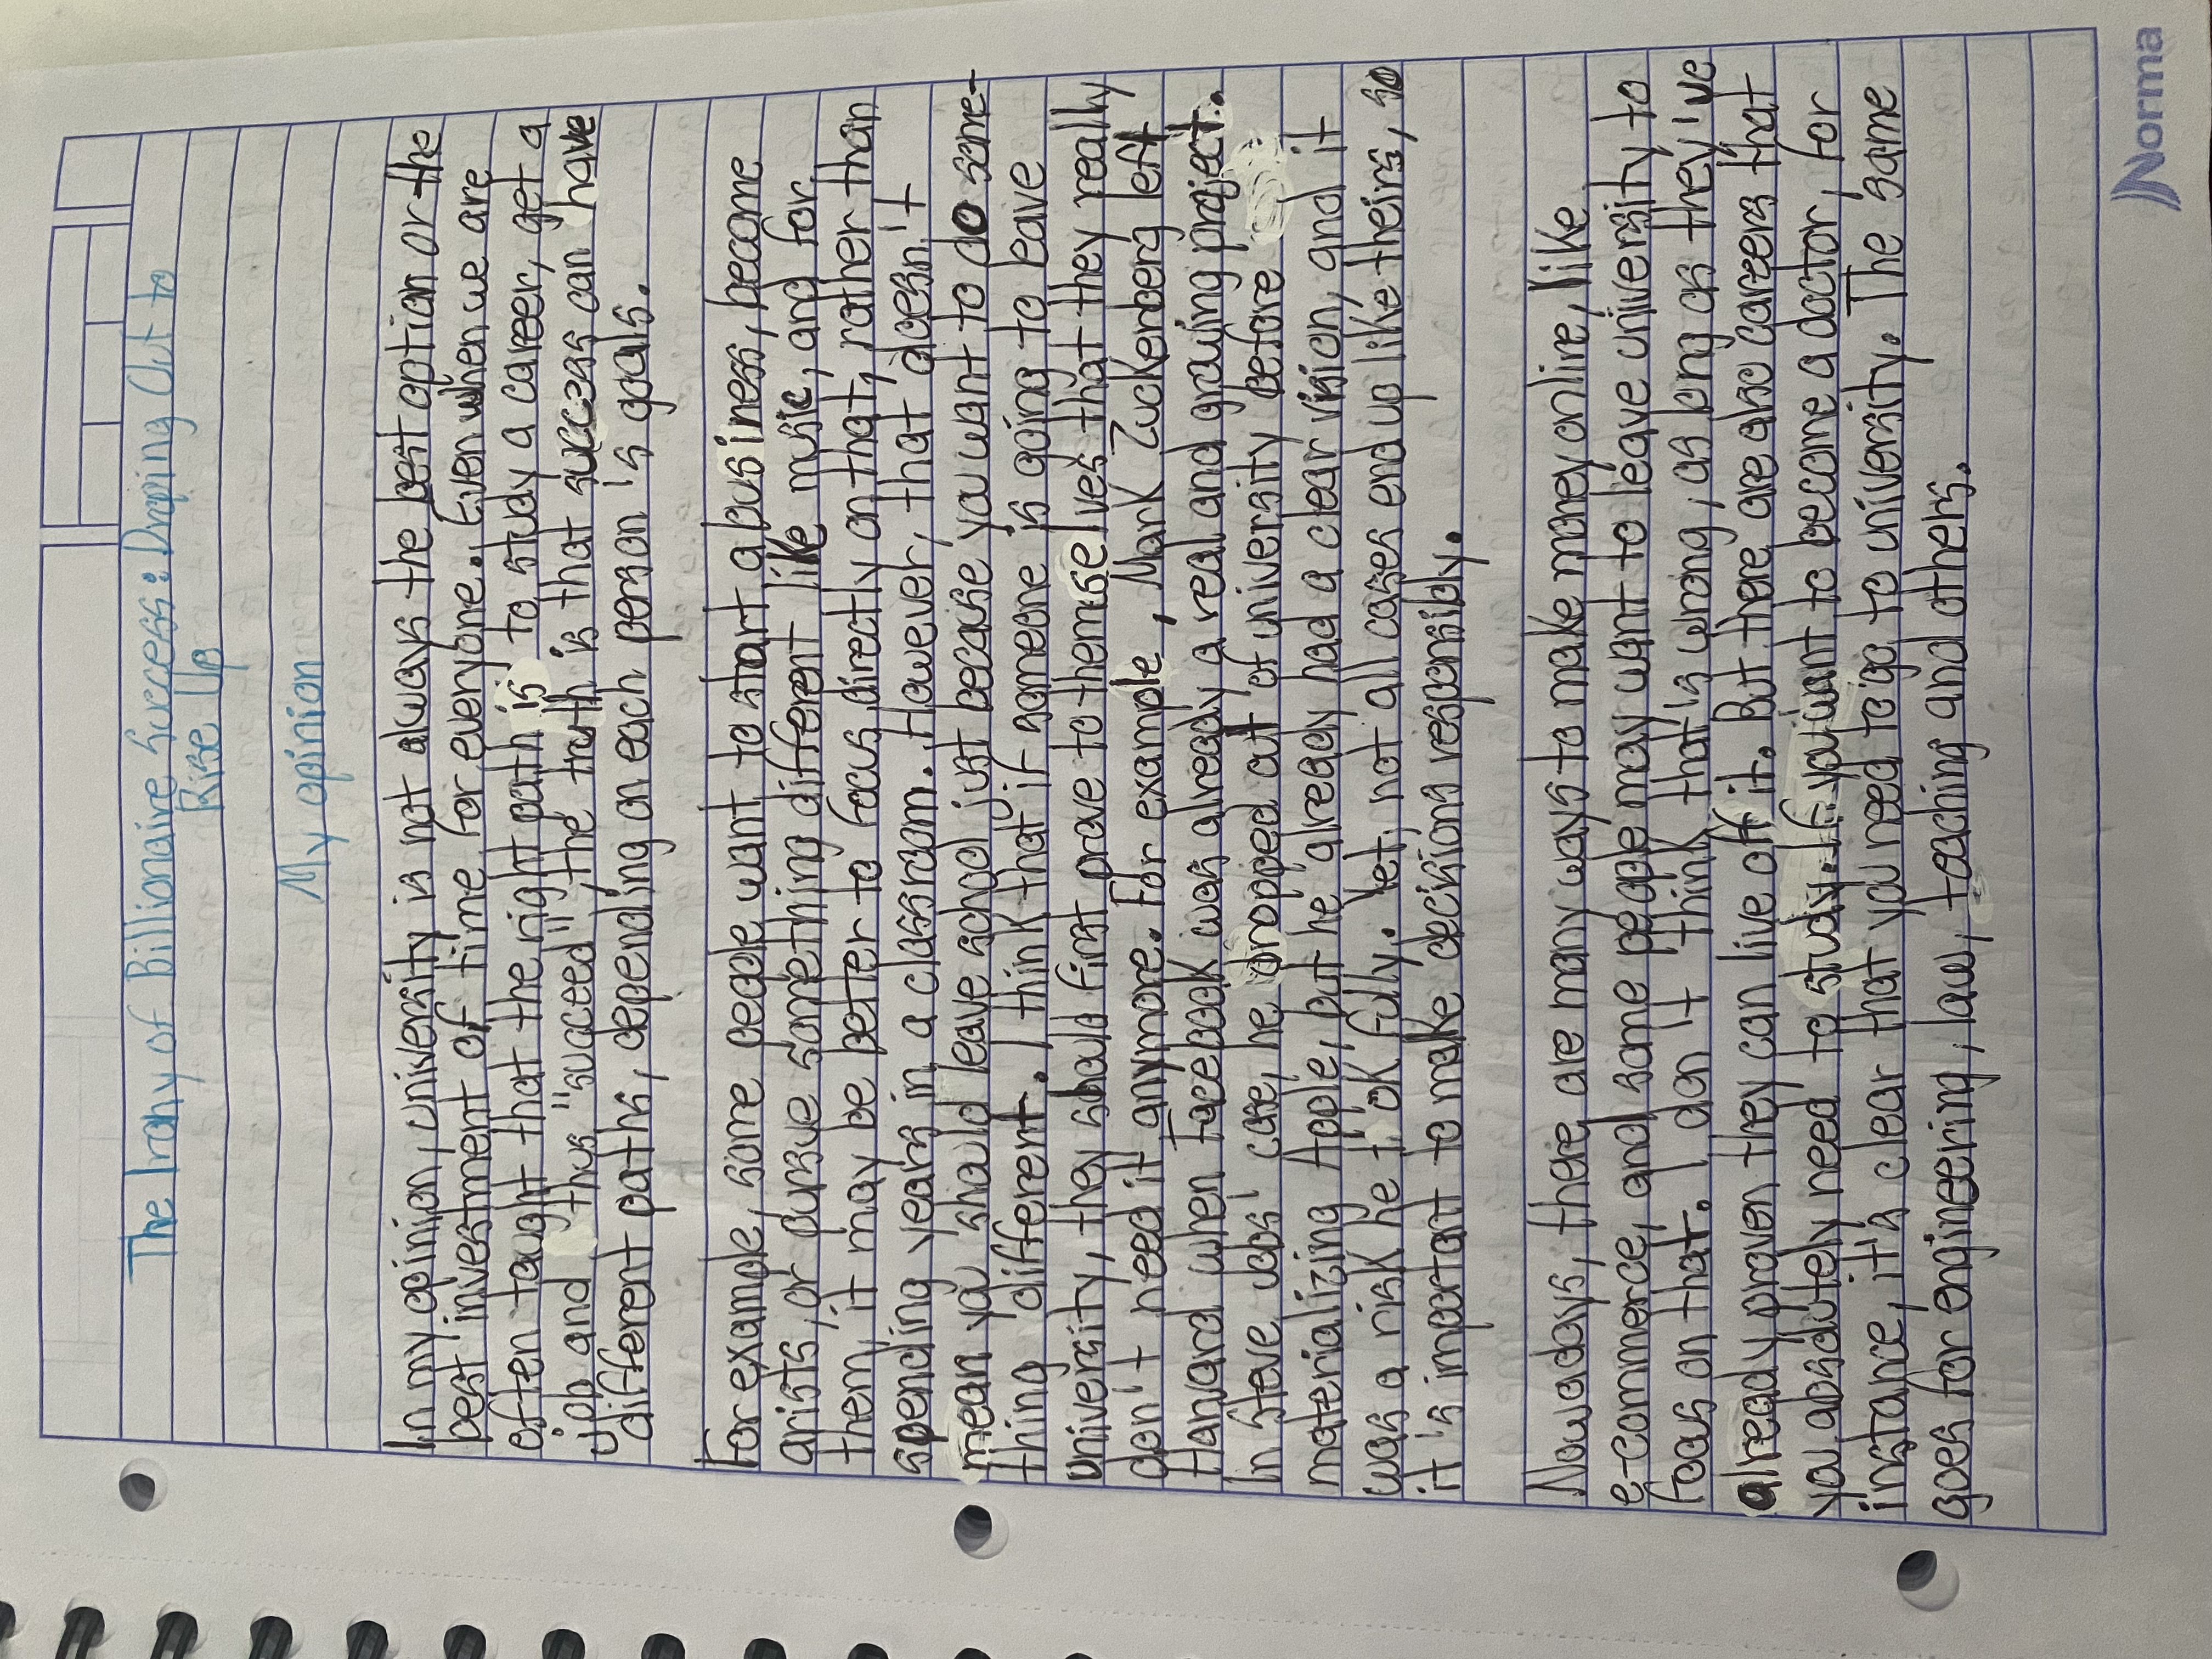 The Irony of Billionaire Success: Droping Out to
Rise Up
My opinion
In my opinion, university is not always the best option or the
best investment of time for everyone. Even when we are
often taught that the right path is to study a career, get a
job and thus "succeed", the truth is that success can have
different paths, depending on each person's goals.
For example, some people want to start a business, become
artists, or pursue something different like music, and for
them, it may be better to focus directly on that, rather than
spending years in a classroom. However, that doesn't
mean you should leave school just because you want to do some-
thing different. I think that if someone is going to leave
university, they should first prove to themselves that they really
don't need it anymore. For example, Mark Zuckenberg left
Harvard when Facebook was already a real and growing project.
In Steve Jobs' case, he dropped out of university before
materializing Apple, but he already had a clear vision, and it
was a risk he took fully. Yet, not all cases end up like theirs, so
it's important to make decisions responsibly.
Nowadays, there are many ways to make money online, like
e-commerce, and some people may want to leave university to
focus on that. I don't think that's wrong, as long as they've
already proven they can live off it. But there are also careers that
you absolutely need to study. If you want to become a doctor, for
instance, it's clear that you need to go to university. The same
goes for engineering, law, teaching and others.
Norma